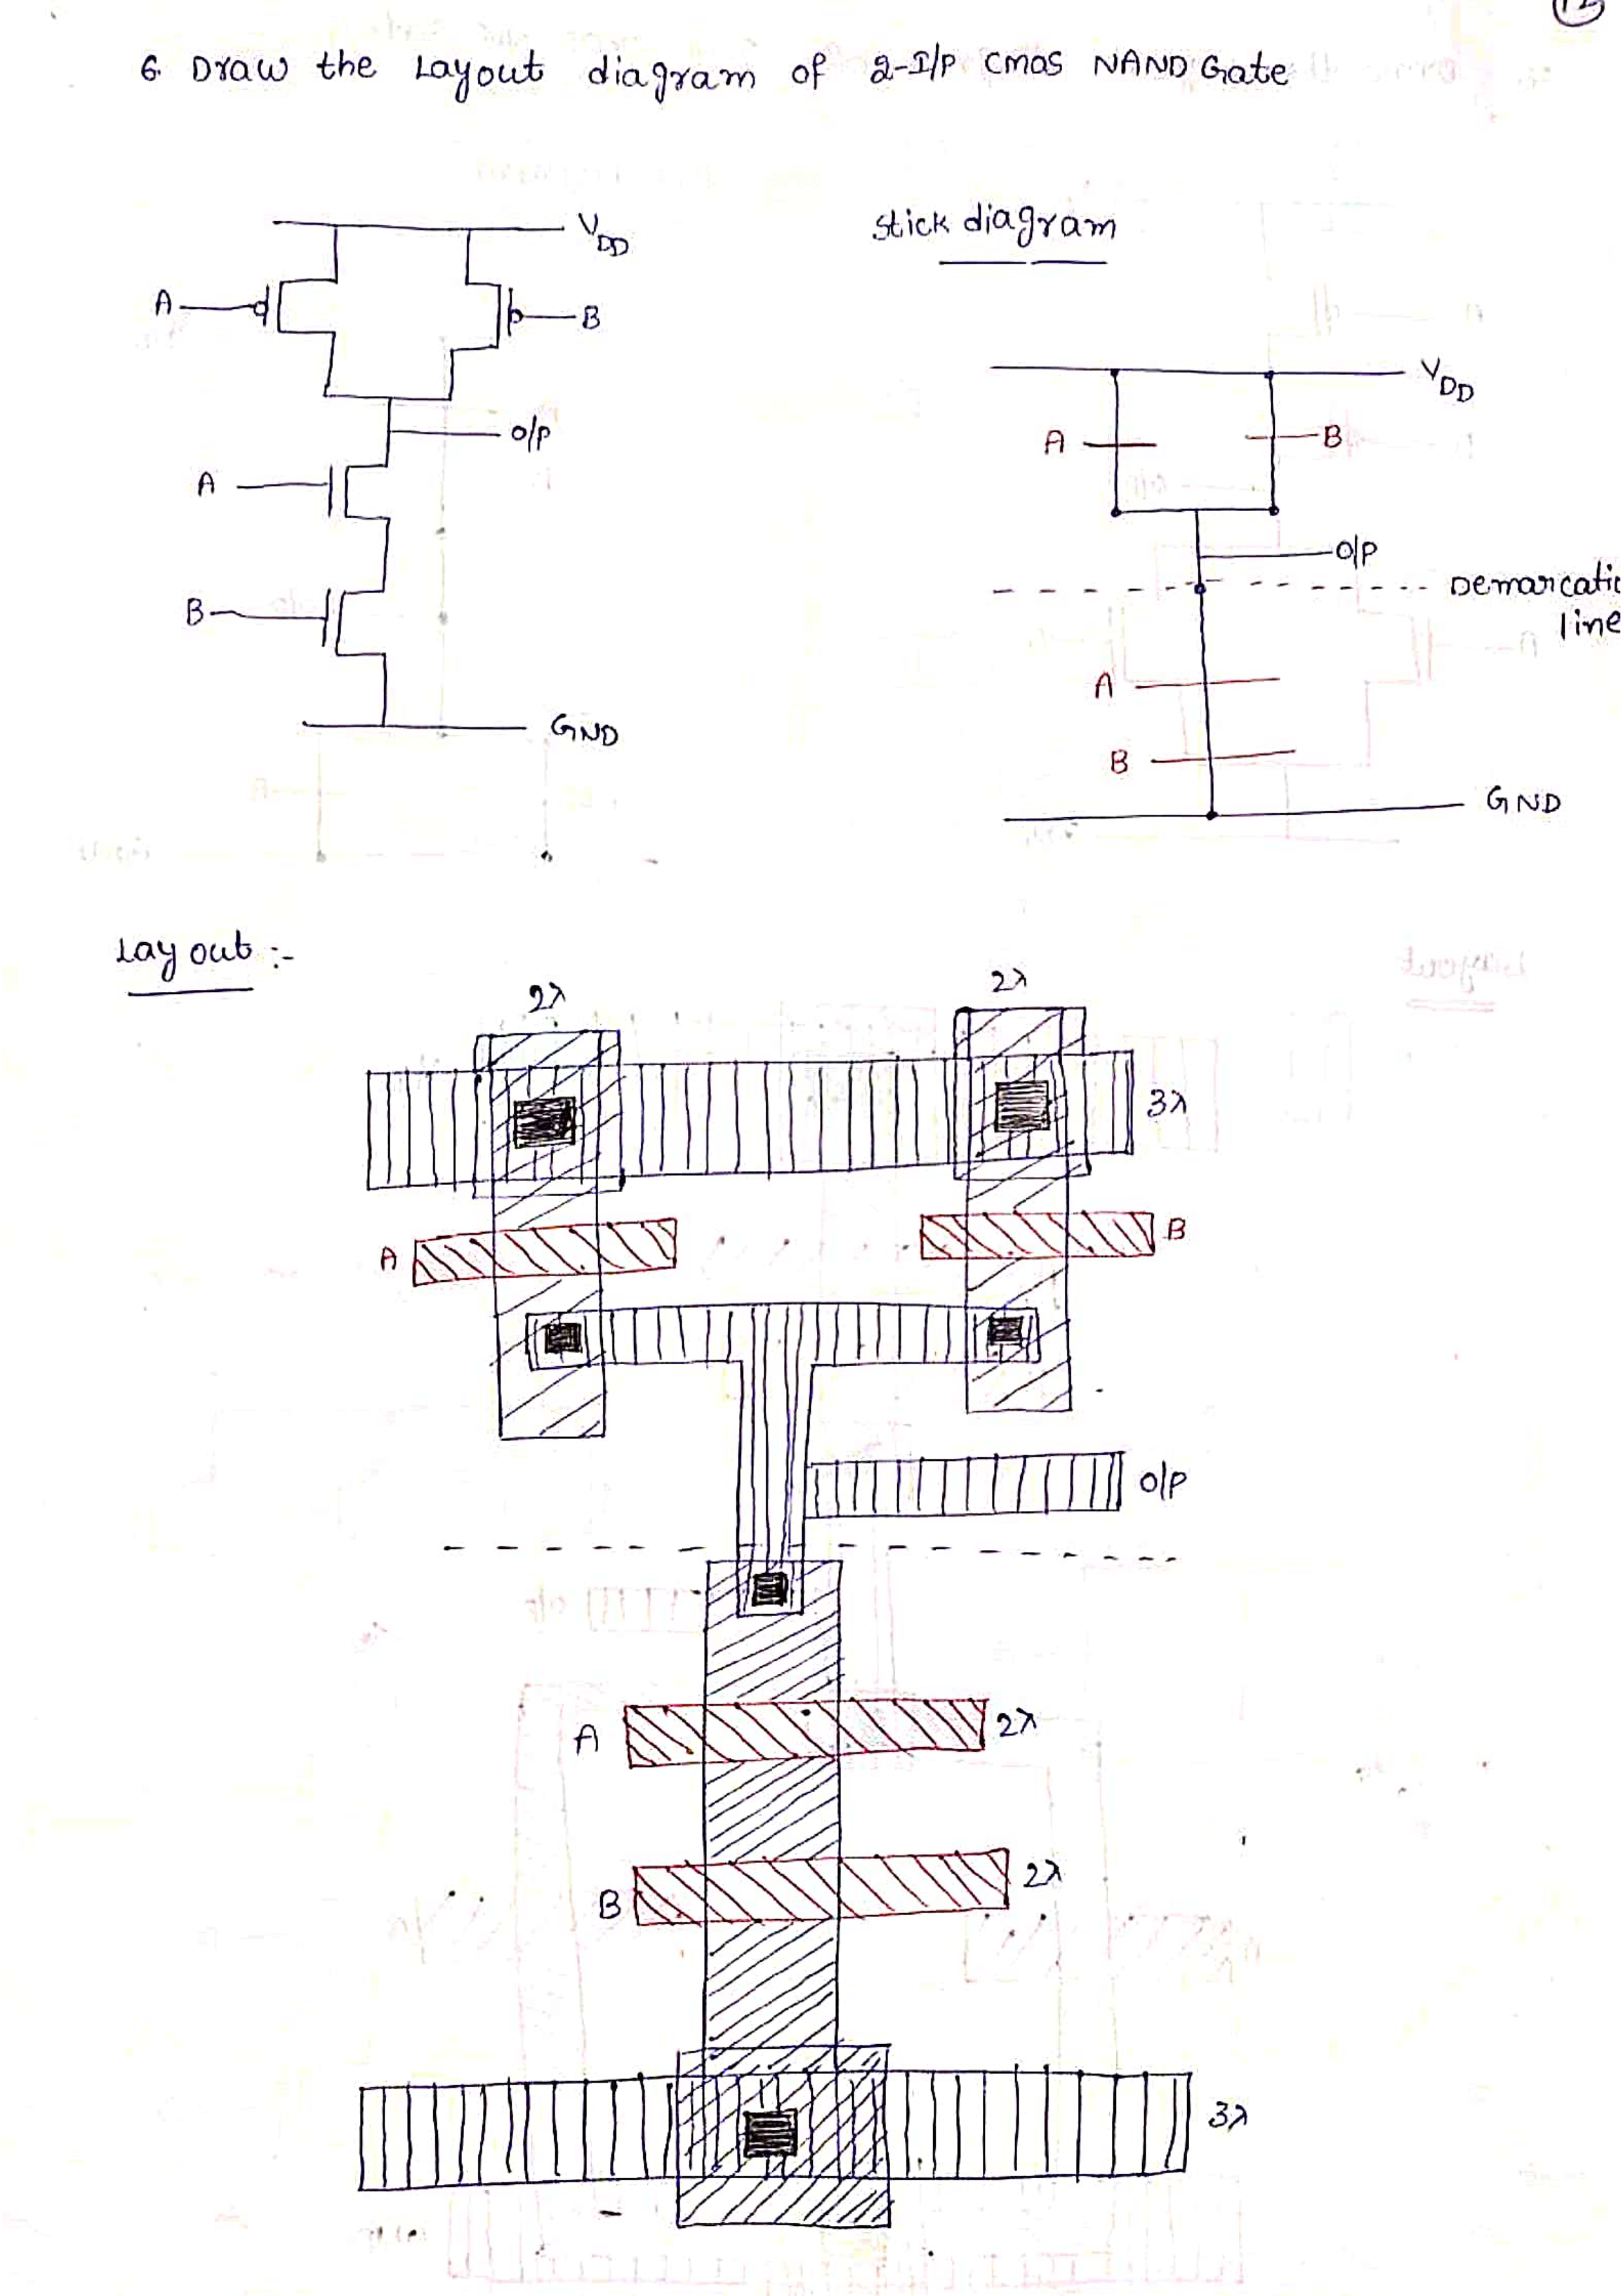 12
6. Draw the Layout diagram of 2-I/P CMOS NAND Gate
VDD
A
B
O/P
A
B
GND
Stick diagram
VDD
A
B
O/P
Demarcatio
line
A
B
GND
Layout :-
2λ
2λ
3λ
A
B
O/P
A
2λ
B
2λ
3λ